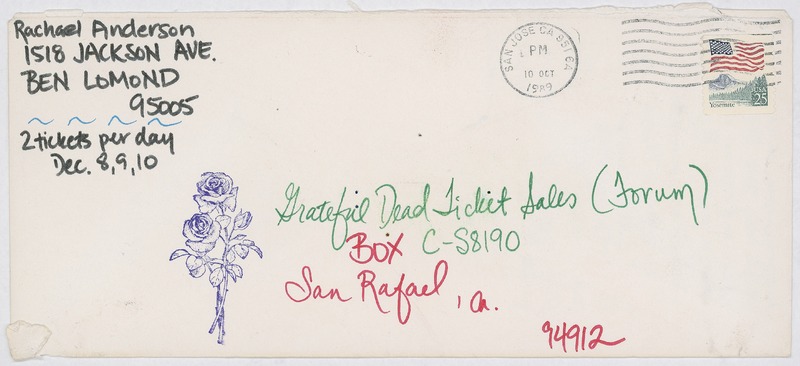 Rachael Anderson
1518 JACKSON AVE.
BEN LOMOND
95005
2 tickets per day
Dec. 8, 9, 10
SAN JOSE CA 951
PM
10 OCT
1989
USA
25
Yosemite
Grateful Dead Ticket Sales (Forum)
BOX C-S8190
San Rafael, Ca.
94912